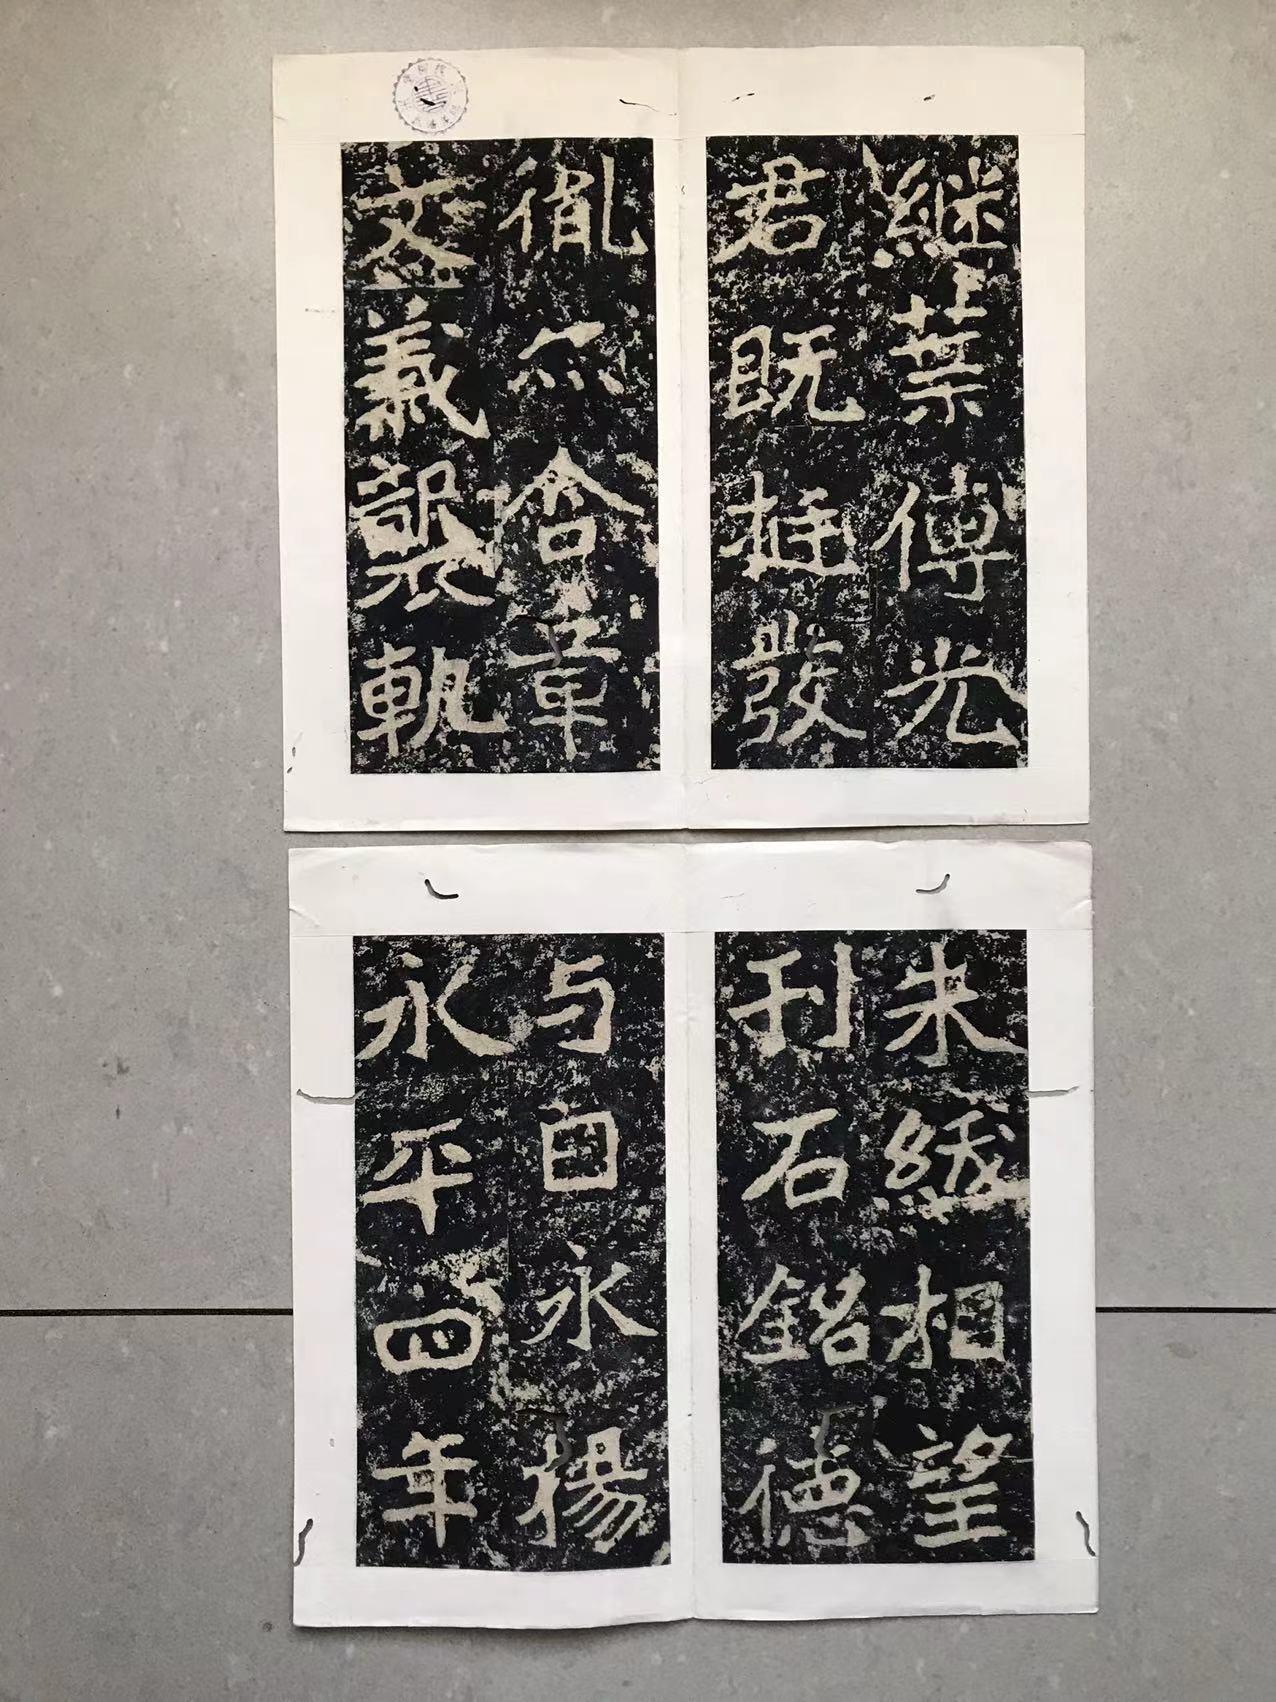 継葉傳光
君既挺發
胤亦含章
文義襲軌
朱紱相望
刊石銘德
与日永揚
永平四年